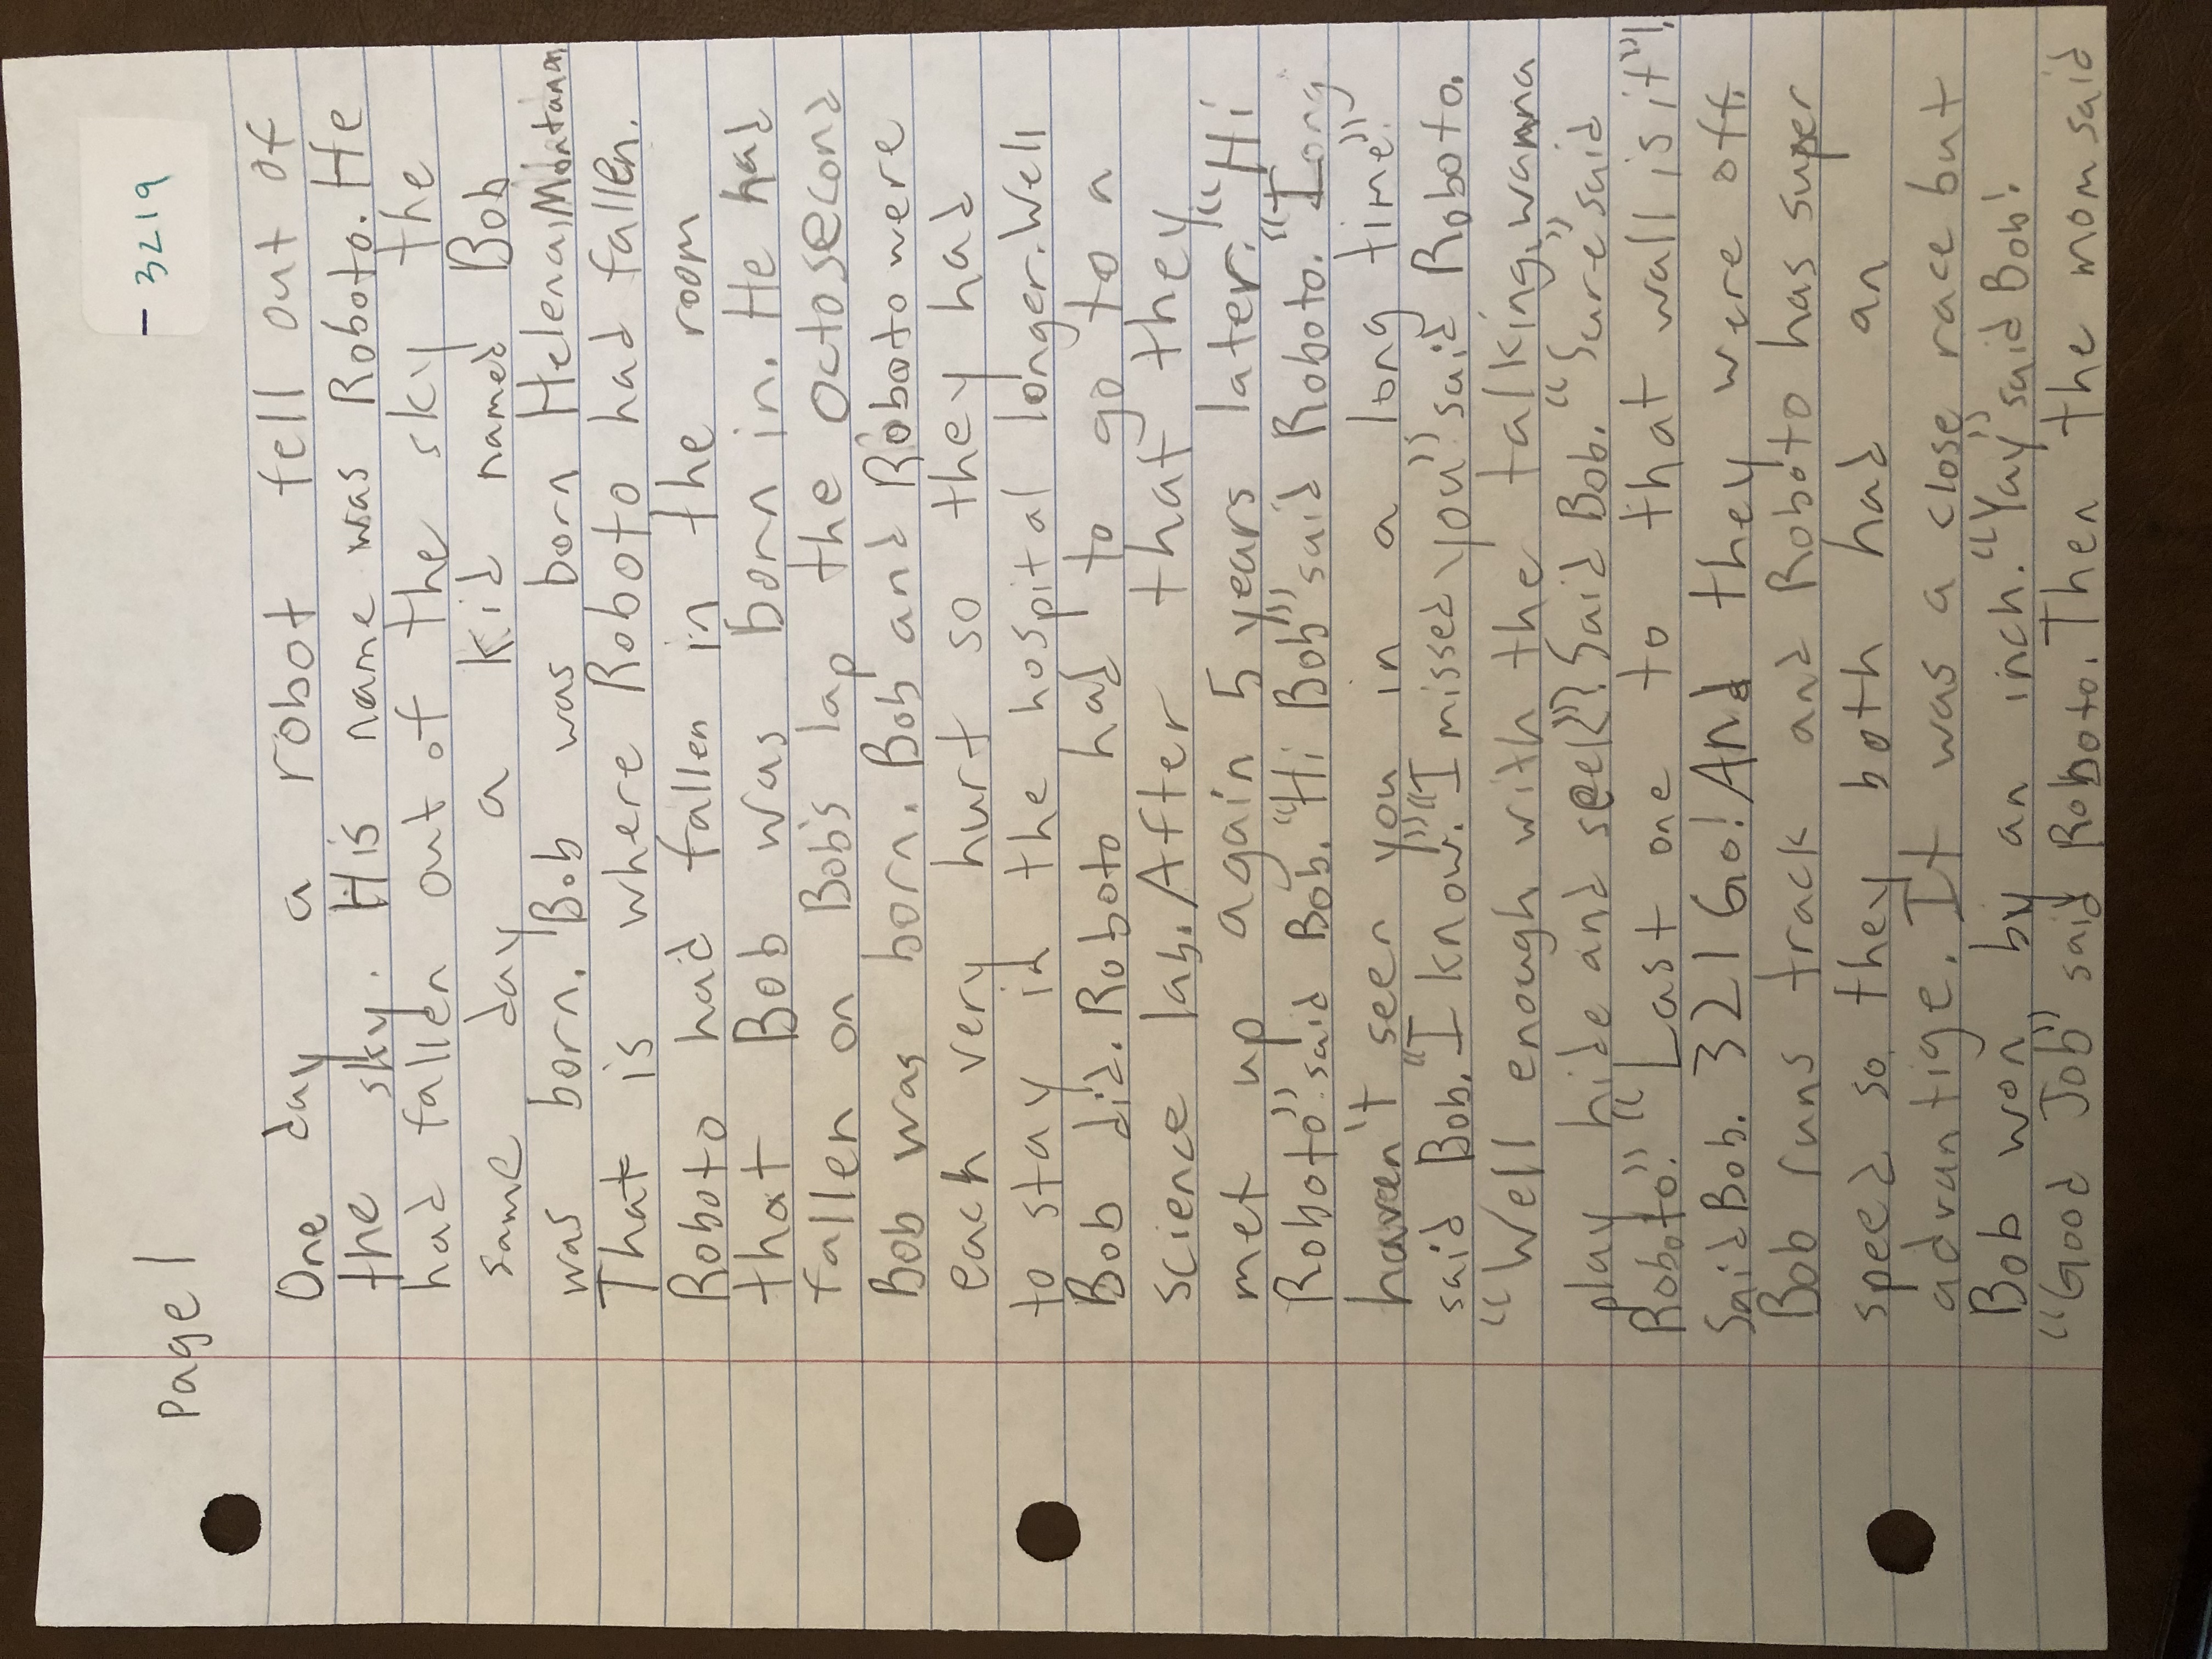 Page 1
- 3219
One day a robot fell out of
the sky. His name was Roboto. He
had fallen out of the sky the
same day a kid named Bob
was born. Bob was born Helena, Montana
That is where Roboto had fallen.
Roboto had fallen in the room
that Bob was born in. He had
fallen on Bob's lap the octosecond
Bob was born. Bob and Roboto were
each very hurt so they had
to stay in the hospital longer. Well
Bob did. Roboto had to go to a
science lab. After that they
met up again 5 years later. "Hi
Roboto" said Bob. "Hi Bob" said Roboto. "I
haven't seen you in a long time."
said Bob. "I know." "I missed you" said Roboto.
"Well enough with the talking, wanna
play hide and seek"? Said Bob. "Sure" said
Roboto." "Last one to that wall is it"!
Said Bob. 321 Go! And they were off.
Bob runs track and Roboto has super
speed so they both had an
advantige. It was a close race but
Bob won by an inch. "Yay" said Bob!
"Good Job" said Roboto. Then the mom said